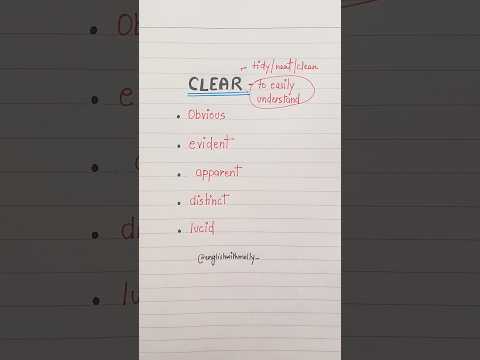 - tidy/neat/clean
CLEAR - to easily
understand
• Obvious
• evident
• apparent
• distinct
• lucid
@englishwithmally_